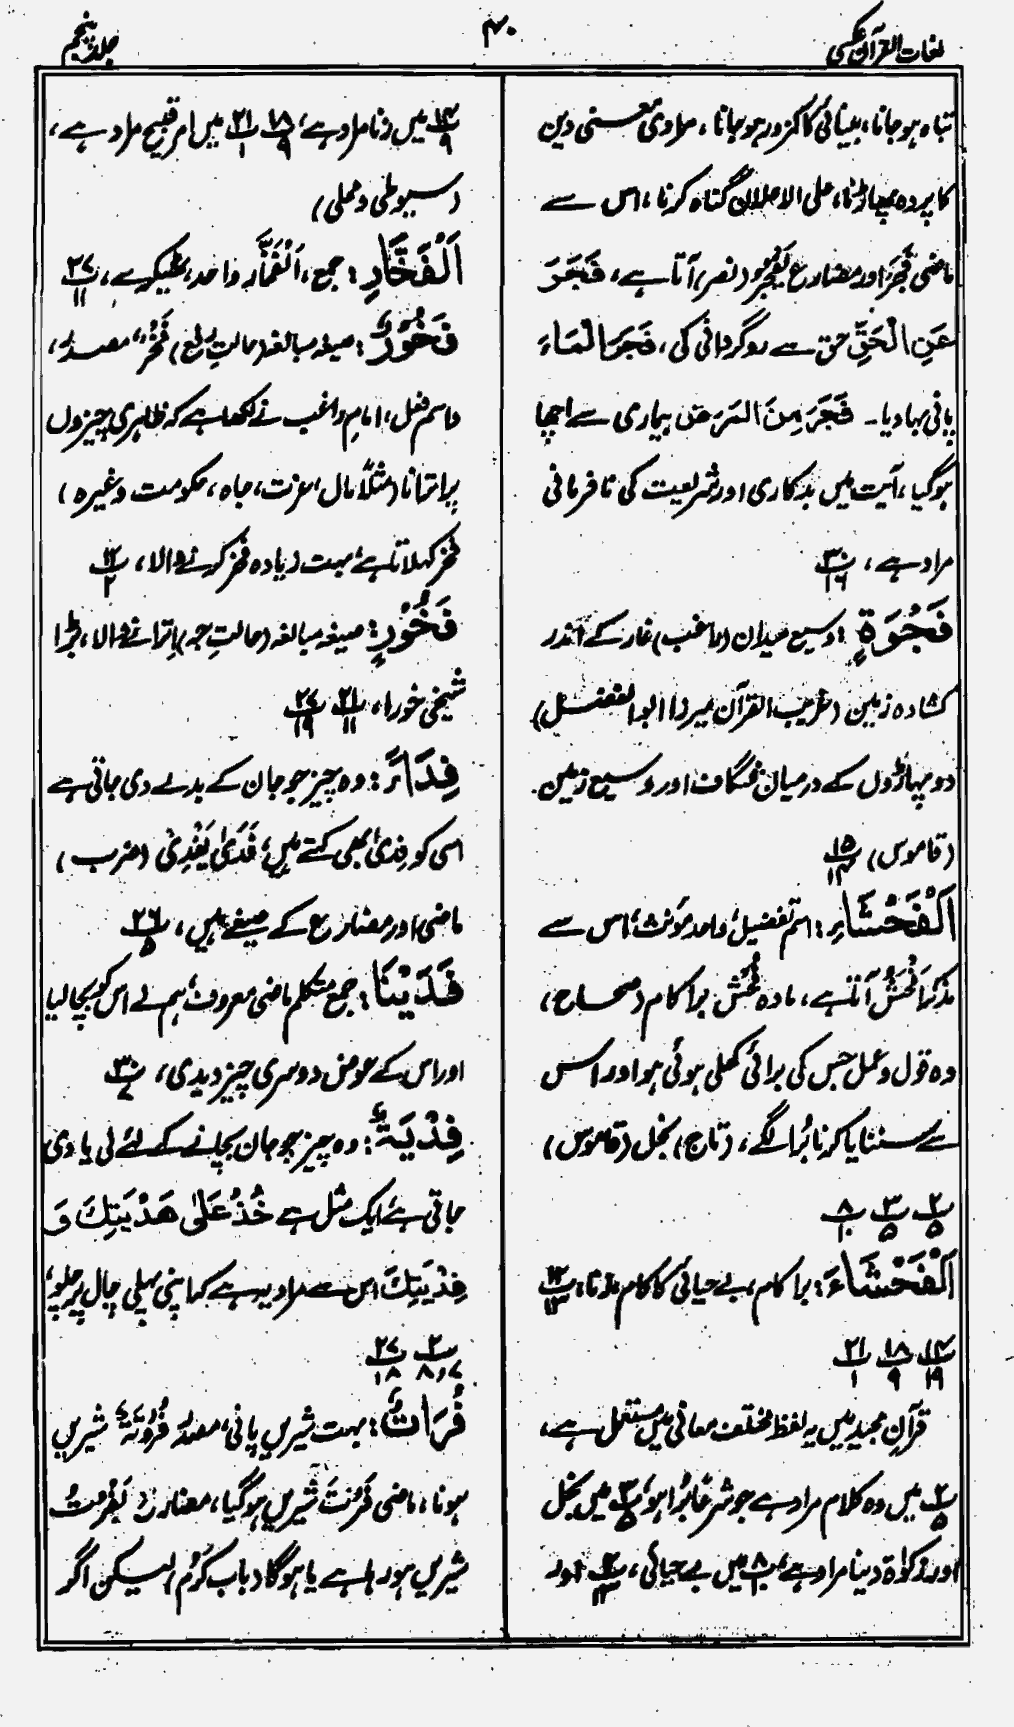 لغات القرآن عکسی
۴۰
جلد پنجم
تباہ ہوجانا، بینائی کا کمزور ہوجانا، مرادی معنی دین
کا پردہ پھاڑنا، علی الاعلان گناہ کرنا، اس سے
ماضی فَجَرَ اور مضارع یَفْجُرُ (نصر) آتا ہے، فَجَرَ
عَنِ الْحَقِّ حق سے روگردانی کی، فَجَرَ الْمَاءَ
پانی بہا دیا۔ فَجَرَ مِنَ المَرَضِ بیماری سے اچھا
ہوگیا، آیت میں بدکاری اور شریعت کی نافرمانی
مراد ہے، پ۳۰ / ۱۶
فَجْوَةٍ: وسیع میدان (راغب) غار کے اندر
کشادہ زمین (غریب القرآن میرزا ابوالفضل)
دو پہاڑوں کے درمیان شگاف اور وسیع زمین۔
(قاموس) پ۱۵ / ۱۴
اَلْفَحْشَاءِ: اسم تفضیل، واحد مؤنث، اس سے
مذکر اَفْحَشُ آتا ہے، مادہ فُحْشٌ برا کام (صحاح)،
وہ قول و عمل جس کی برائی کھلی ہوئی ہو اور اس
سے سننا یا کرنا بُرا لگے، (تاج) بخل (قاموس)
پ۲ / ۵ پ۳ / ۵ پ۸ / ۱۰
اَلْفَحْشَاءَ: برا کام، بے حیائی کا کام، زنا، پ۱۲ / ۱۳
پ۱۴ / ۱۹ پ۱۸ / ۹ پ۲۱ / ۱
قرآن مجید میں یہ لفظ مختلف معانی میں مستعمل ہے،
پ۲ / ۵ میں وہ کلام مراد ہے جو شرعًا بُرا ہو، پ۳ / ۵ میں بخل
اور زکوٰۃ دینا مراد ہے، پ۸ / ۱۰ میں بے حیائی، پ۱۲ / ۱۳ اور
پ۱۴ / ۹ میں زنا مراد ہے، پ۱۸ / ۹ پ۲۱ / ۱ میں امر قبیح مراد ہے،
(سیوطی و محلی)
اَلْفَخَّارِ: جمع، اَلْفَخَّارَہ واحد، ٹھیکرے، پ۲۷ / ۱۱
فَخُوْرٌ: صیغہ مبالغہ (حالتِ رفع) فَخْرٌ، مصدر،
و اسم فعل، امام راغب نے لکھا ہے کہ ظاہری چیزوں
پر اترانا (مثلًا مال، عزت، جاہ، حکومت وغیرہ)
فخر کہلاتا ہے، بہت زیادہ فخر کرنے والا، پ۱۲ / ۲
فَخُوْرٍ: صیغہ مبالغہ (حالتِ جر) اِترانے والا، بڑا
شیخی خورا، پ۲۱ / ۱۱ پ۲۷ / ۱۹
فِدَاءً: وہ چیز جو جان کے بدلے دی جاتی ہے
اسی کو فِدیٰ بھی کہتے ہیں، فَدَیٰ یَفْدِیْ (ضرب)
ماضی اور مضارع کے صیغے ہیں، پ۲۶ / ۵
فَدَیْنَا: جمع متکلم ماضی معروف، ہم نے اس کو بچا لیا
اور اس کے عوض دوسری چیز دیدی، پ۲۳ / ۷
فِدْیَةٌ: وہ چیز جو جان بچانے کے لئے لی یا دی
جاتی ہے، ایک مثل ہے خُذْ عَلٰی ھَدْیَتِكَ وَ
فِدْیَتِكَ اس سے مراد یہ ہے کہ اپنی پہلی چال پر چلو،
پ۲ / ۸،۷ پ۲۷ / ۱۸
فُرَاتٌ: بہت شیریں پانی، مصدر فُرُوْتَةٌ شیریں
ہونا، ماضی فَرُتَ شیریں ہوگیا، مضارع یَفْرُتُ
شیریں ہو رہا ہے یا ہوگا (باب کَرُمَ) لیکن اگر